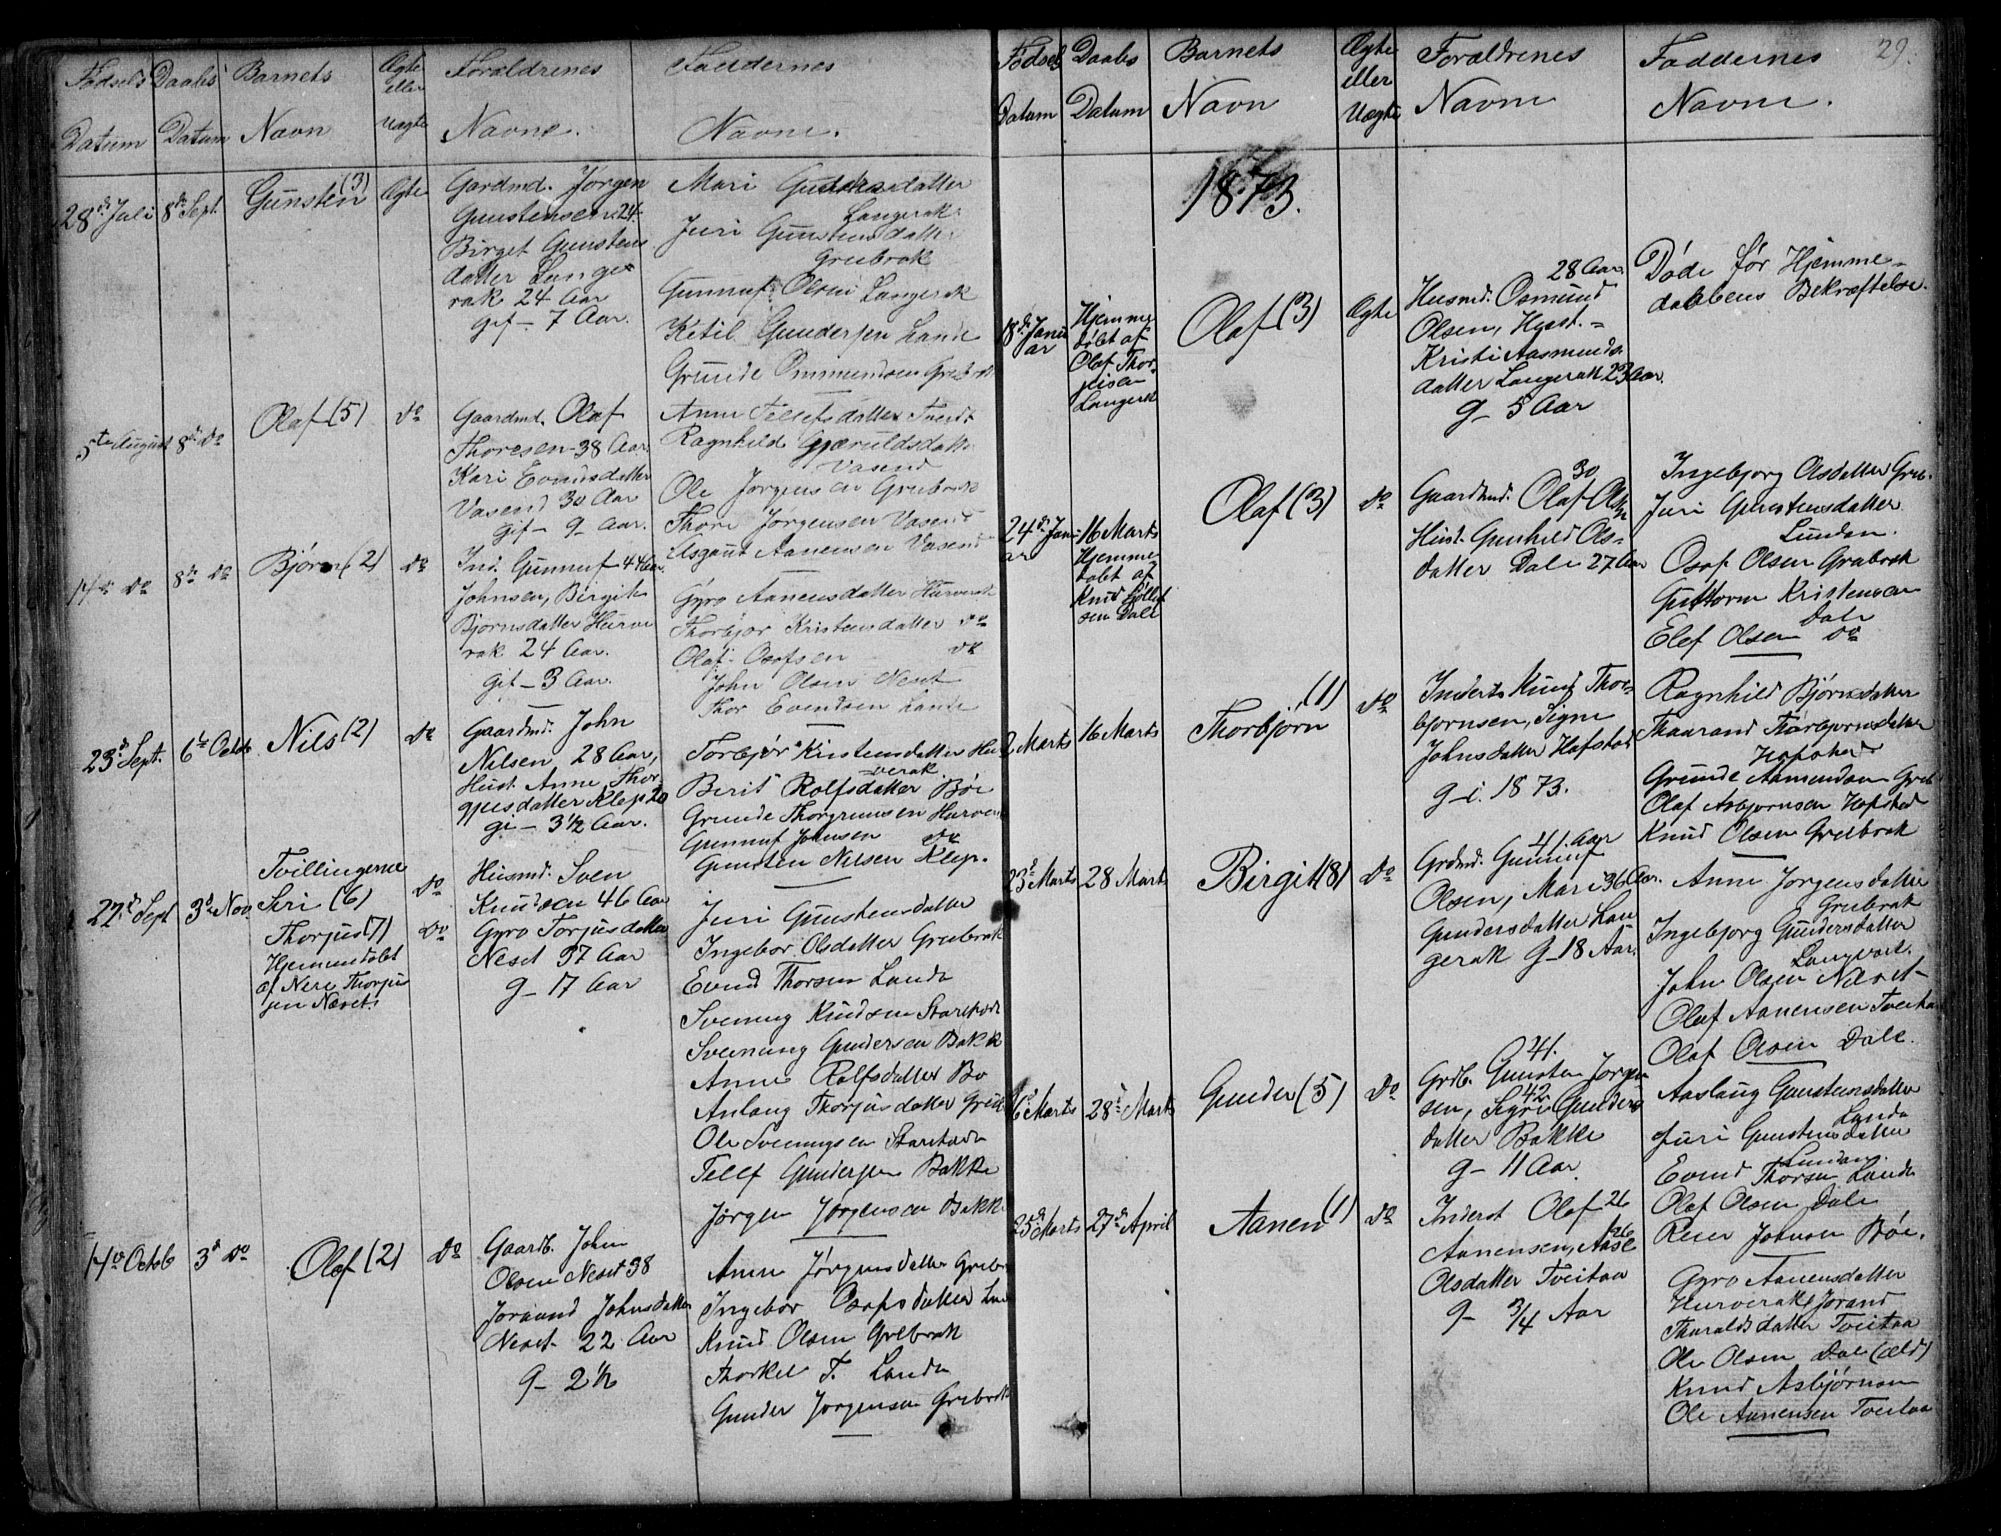 Fødsels Daabs Barnets Ægte Forældrenes Faddernes
eller
Datum Datum Navn Uægte Navne. Navne.
28de Juli 8de Sept. Gunsten (3) Ægte
Gardmd. Jørgen
Gunstensen 24
Birget Gunstens
datter Lange-
rak 24 Aar
gif - 7 Aar.
Mari
Langerak
Juri Gunstensdatter
Grubrok
Gunnuf Olsen Langerak
Ketil Gundersen Lande
Grunde Ommundsen
5te August 8de do Olaf (5) do
Gaardmd. Olaf
Thoresen 38 Aar.
Kari Evindsdatter
Vasend 30 Aar
gif - 9 - Aar.
Anne Tellefsdatter Tveit
Ragnhild Gjæruldsdatter
Vasend
Ole Jørgensen Grubrok
Thore Jørgensen Vasend
Asgaut Aanensen Vasend
14de do 8de do Bjørn (2) do
Ind. Gunnuf 44 Aar.
Johnsen, Birgit
Bjørnsdatter Hurve
rak 24 Aar.
gif - 3 Aar.
Gyro Aanensdatter Hurverak
Thorbjør Kristensdatter do
Olaf Osofsen do
John Olsen Neset
Thor Evendsen Lande
23d Sept. 6te Octob. Nils (2) do
Gaardmd. John
Nilsen 28 Aar,
Hust. Anne Thor-
gjusdatter Klep 20
gi - 3½ Aar.
Torbjør Kristensdatter Hur
verak
Berit Rolfsdatter Bøe
Grunde Thorgrimsen Hurve
Gunnuf Johnsen do
Gunsten Nilsen Klep.
22d Sept 3d Nov.
Tvillingerne
Siri (6) do
Thorjus (7) do
Hjemmedøbt
af Neri Thorju
sen Næset.
Husmd. Sven
Knudsen 46 Aar
Gyro Torjusdatter
Neset 37 Aar
g - 17 Aar
Juri Gunstensdatter
Ingebor Olsdatter Grubrok
Evend Thorsen Lande
Svenung Knudsen
Svenung Gundersen Bakke
Anne Rolfsdatter Bø
Anlaug Thorjusdatter
Ole Svenungsen
Tellef Gundersen Bakke
Jørgen Jørgensen Bakke
14de Octob 3d do Olaf (2) do
Gaardb. John
Olsen Neset 38
Joraand Johnsdatter
Neset 22 Aar
g - 2½
Anne Jørgensdatter
Ingebor Osofsdatter
Knud Olsen Grebrok
Thorkel T. Lande
Gunder Jørgensen Grebrok
29.
Fødsels Daabs Barnets Ægte Forældrenes Faddernes
eller
Datum Datum Navn Uægte Navne Navne.
1873.
18de Janu
ar
Hjemme
døbt af
Olaf Thor-
jusen
Langerak
Olaf (3) Ægte
28 Aar.
Husmd. Osmund
Olsen, Hust. -
Kristi Aasmunds
datter Langerak 23 Aar.
g - 5 Aar
Døde før Hjemme-
daabens Bekræftelse.
24de Janu
ar
16 Marts
Hjemme
døbt af
Knud
sen Dale
Olaf (3) do
30
Gaardmd. Olaf Olsen
Hust. Gunhild Ols-
datter Dale 27 Aar
Ingebjorg Olsdatter Grub.
Juri Gunstensdatter
Lunden.
Osof Olsen Grabrok
Guttorm Kristensen
Dale
Elef Olsen do
2 Marts 16 Marts Thorbjørn (1) do
Inderst Knud Thor-
bjørnsen, Signe
Johnsdatter Hafstad
g - i. 1873.
Ragnhild Bjørnsdatter
Thaarand Thorbjornsdatter
Hofstad
Grunde Aamundsen Greb
Olaf Asbjørnsen Hofstad
Knud Olsen Grebrok
23d Marts 28 Marts Birgit (8) do
41. Aar
Grdmd. Gunnuf
Olsen, Mari 36 Aar.
Gundersdatter Lan
gerak g - 18 Aar.
Anne Jørgensdatter
Grubrak
Ingebjorg Gundersdatter
John Olsen Næset
Olaf Aanensen Tveitaa
Olaf Olsen Dale.
Marts 28de Marts Gunder (5) do
41.
Grdb. Gunsten Jørgen
sen, Sigri 42 Gunders
datter Bakke
g - 11 Aar
Aaslaug Gunstensdatter
Lande
Juri Gunstensdatter
Lunden.
Evend Thorsen Lande
Olaf Olsen Dale
Reier Johnsen Bøe.
25de Marts 27de April Aanen (1) do
Inderst Olaf 26
Aanensen, Aase 26
Olsdatter Tveitaa
g - ¾ Aar
Gyro Aanensdatter
Hurverak, Jorand
Tharaldsdatter Tveitaa
Ole Olsen Dale (æld)
Knud Asbjørnsen
Ole Aanensen Tveitaa